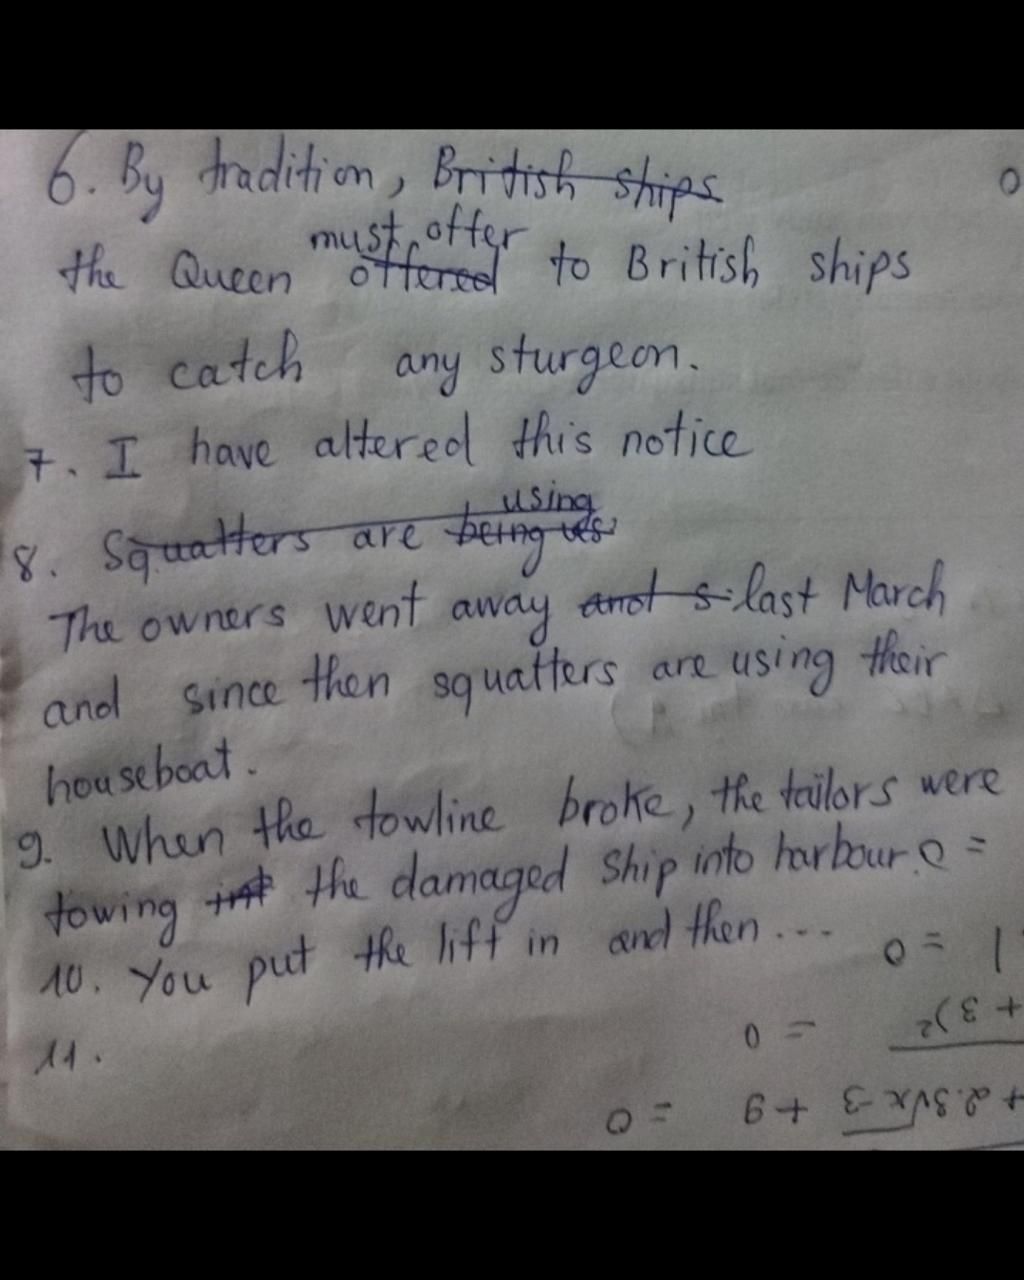 6. By tradition, British ships
the Queen must offer offered to British ships
to catch any sturgeon.
7. I have altered this notice
8. Squatters are being using
The owners went away and s last March
and since then squatters are using their
houseboat.
9. When the towline broke, the tailors were
towing int the damaged ship into harbour.
10. You put the lift in and then ...
11.
0
0 =
1 = 0
+ 3)² = 0
+ 9 = 0